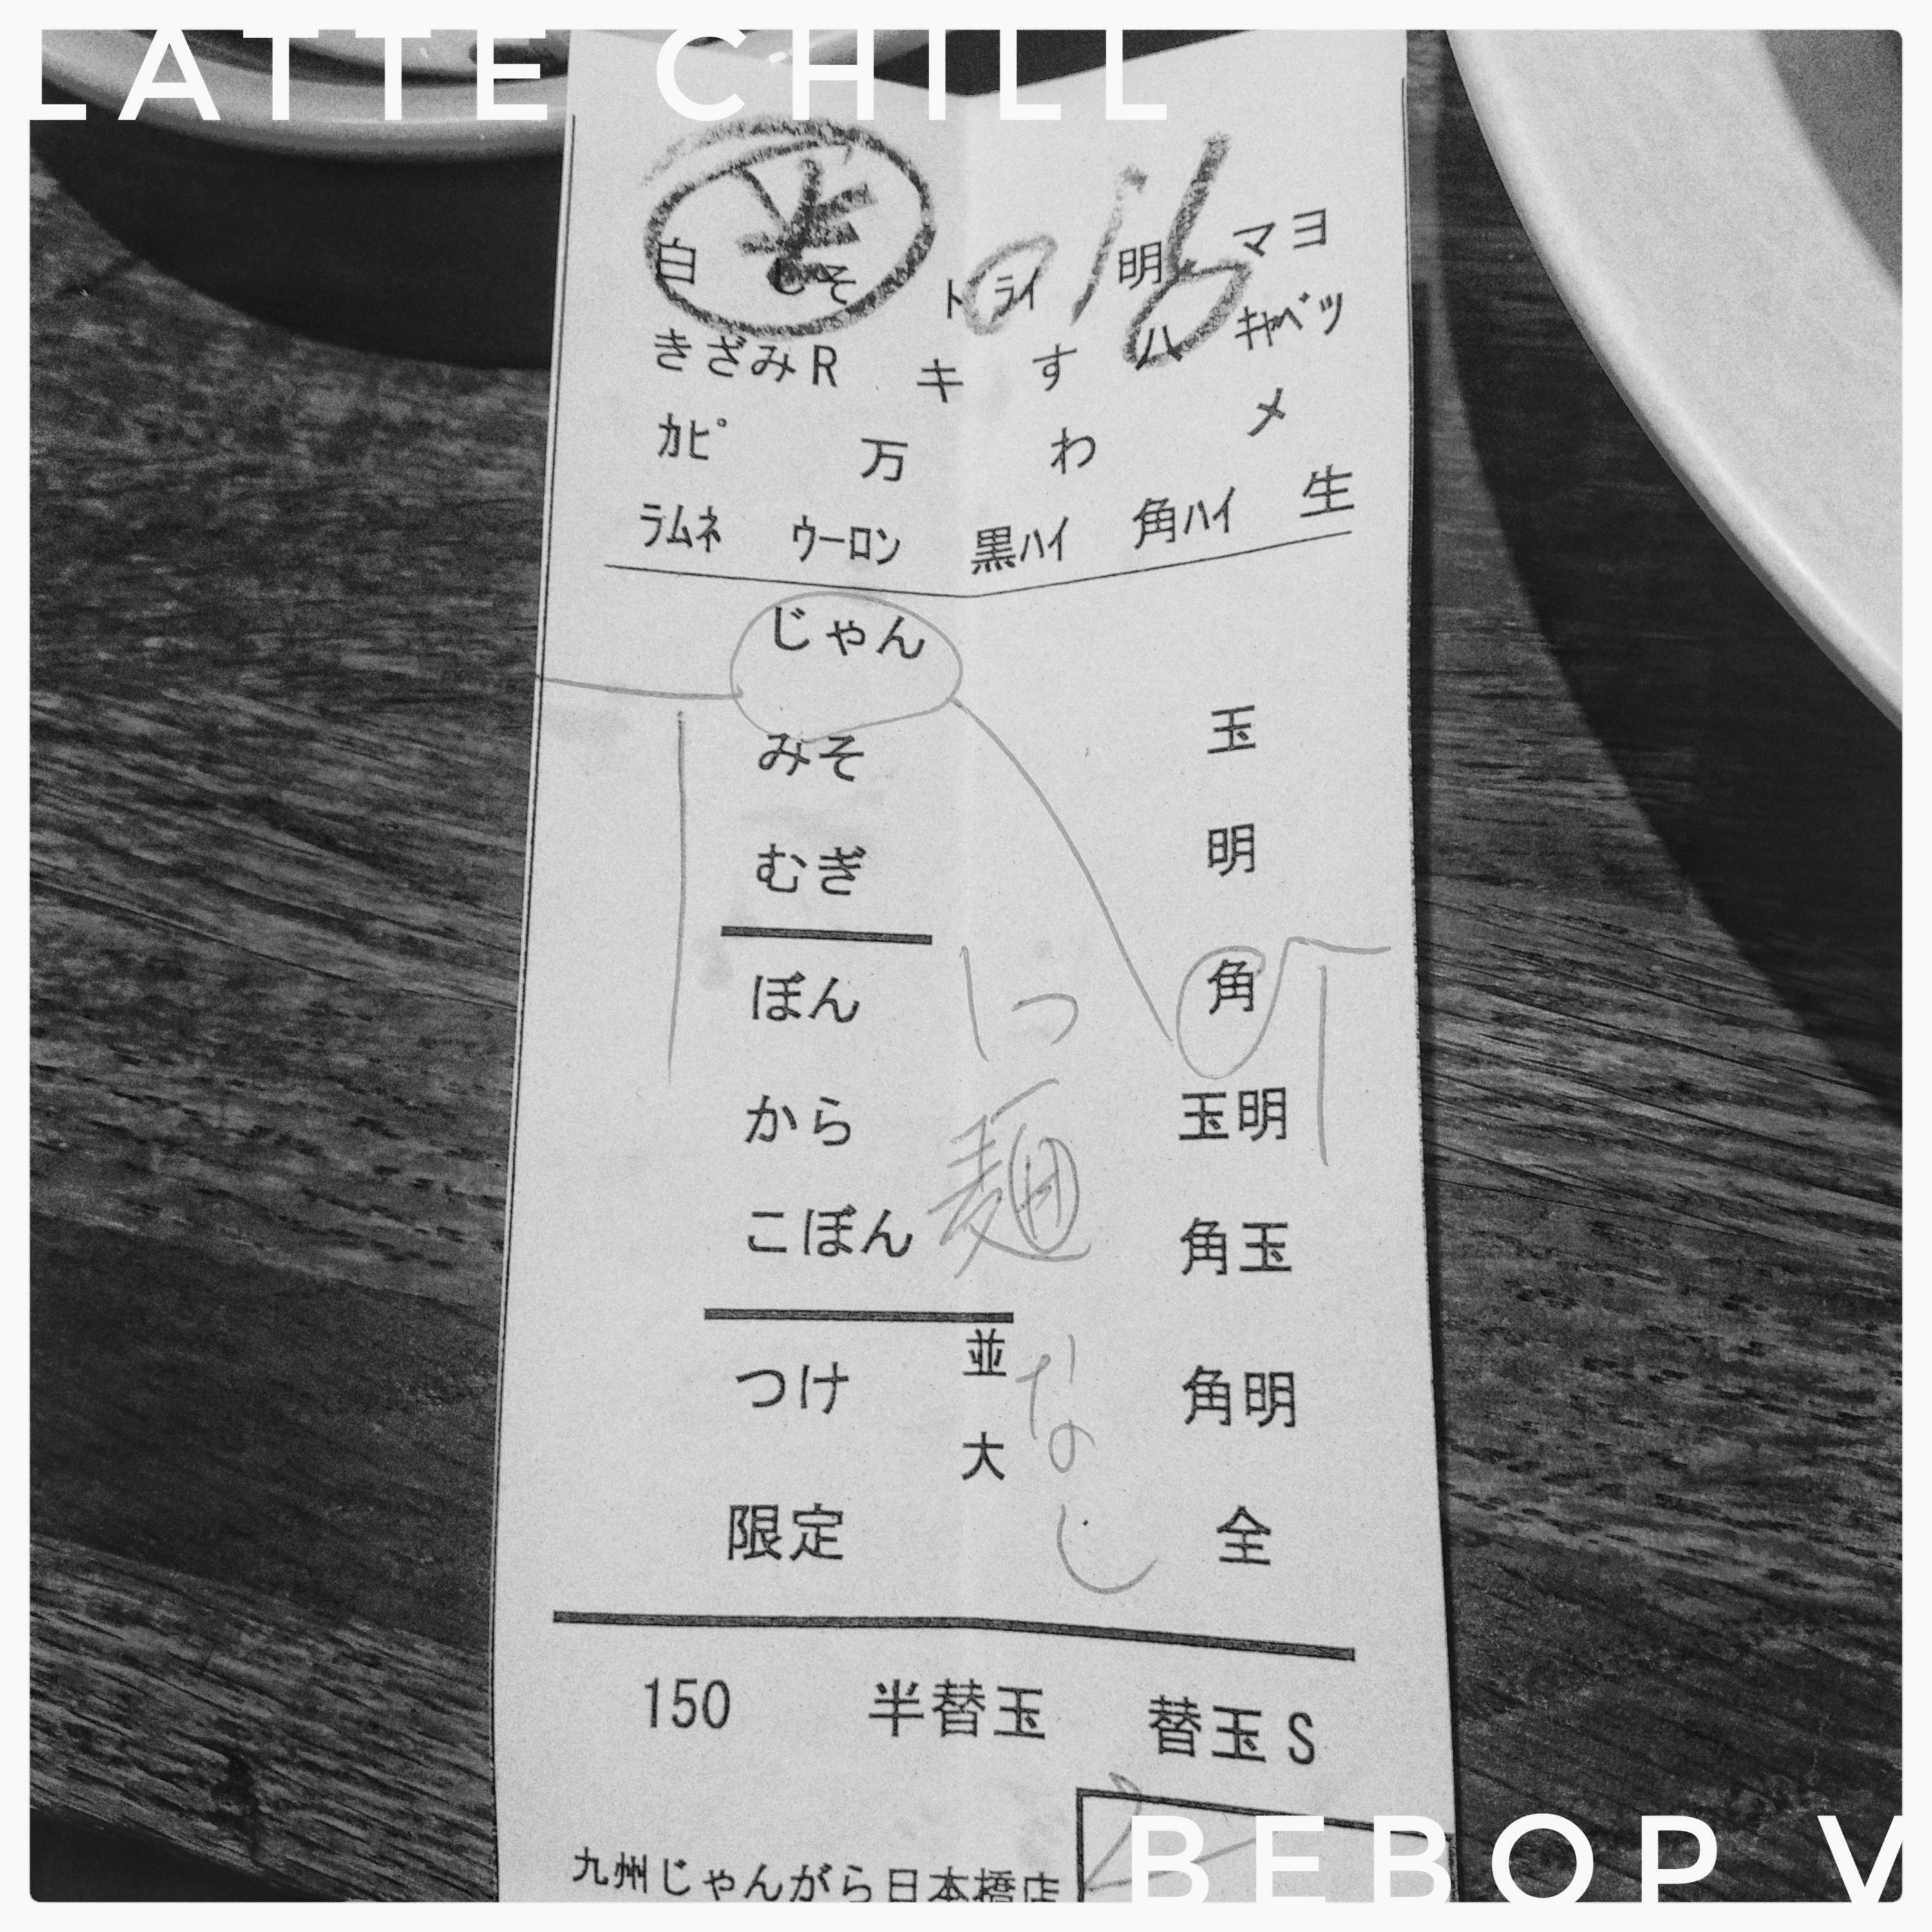 LATTE CHILL
白 しそ トライ 明 マヨ
きざみR キ す ハ キャベツ
カピ 万 わ メ
ラムネ ウーロン 黒ハイ 角ハイ 生
じゃん
みそ 玉
むぎ 明
ぼん 角
から 玉明
麺
こぼん 角玉
つけ 並 なし 角明
大
限定 全
150 半替玉 替玉S
九州じゃんがら日本橋店
BEBOP V